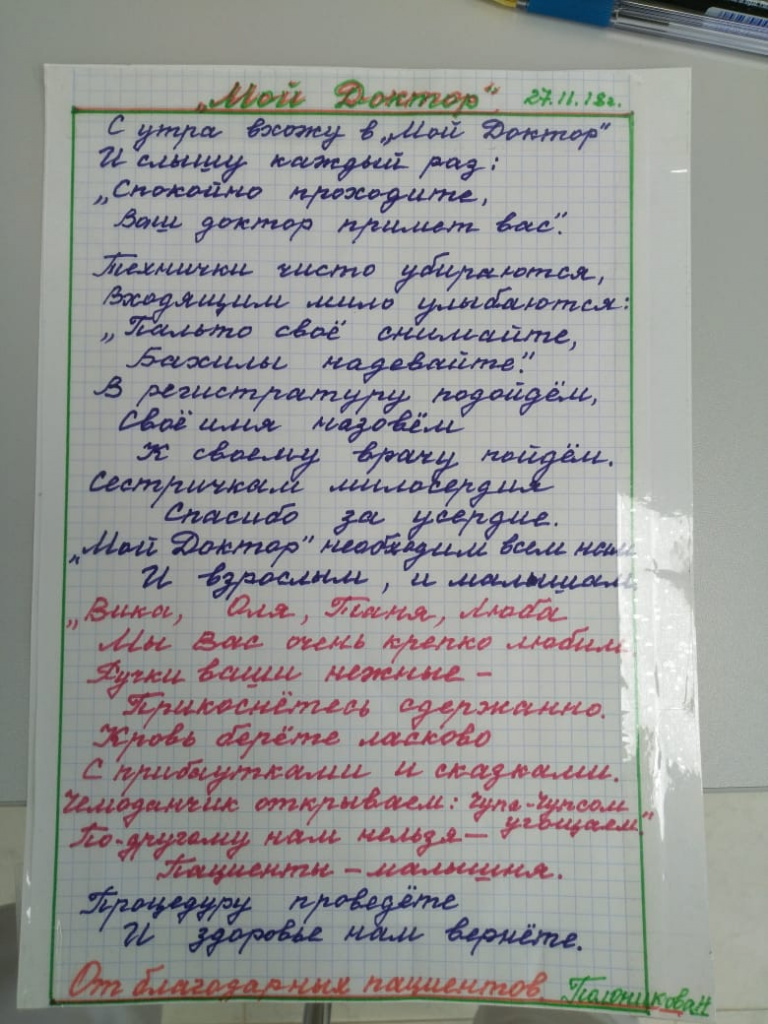 „Мой Доктор" 27.11.18г.
С утра вхожу в „Мой Доктор"
И слышу каждый раз:
„Спокойно проходите,
Ваш доктор примет вас".
Технички чисто убираются,
Входящим мило улыбаются:
„Пальто своё снимайте,
Бахилы надевайте".
В регистратуру подойдём,
Своё имя назовём
К своему врачу пойдём.
Сестричкам милосердия
Спасибо за усердие.
„Мой Доктор" необходим всем нам
И взрослым, и малышам
„Вика, Оля, Таня, Люба
Мы Вас очень крепко любим.
Ручки ваши нежные –
Прикоснётесь сдержанно.
Кровь берёте ласково
С прибаутками и сказками.
Чемоданчик открываем: Чупа-Чупсом
угощаем"
По-другому нам нельзя –
Пациенты – малышня.
Процедуру проведёте
И здоровье нам вернёте.
От благодарных пациентов